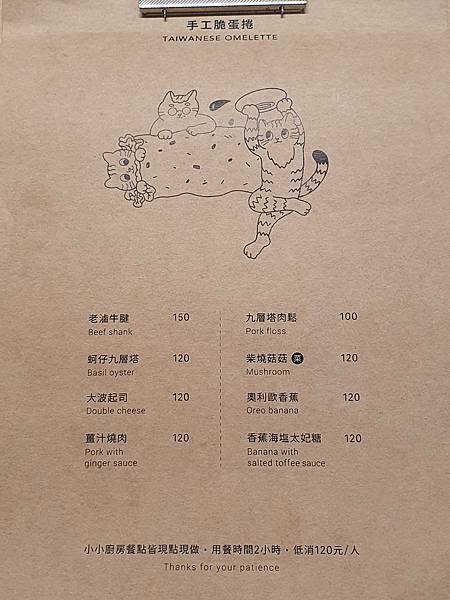 手工脆蛋捲
TAIWANESE OMELETTE
老滷牛腱 150
Beef shank
蚵仔九層塔 120
Basil oyster
大波起司 120
Double cheese
薑汁燒肉 120
Pork with
ginger sauce
九層塔肉鬆 100
Pork floss
柴燒菇菇 菜 120
Mushroom
奧利歐香蕉 120
Oreo banana
香蕉海塩太妃糖 120
Banana with
salted toffee sauce
小小廚房餐點皆現點現做・用餐時間2小時・低消120元/人
Thanks for your patience